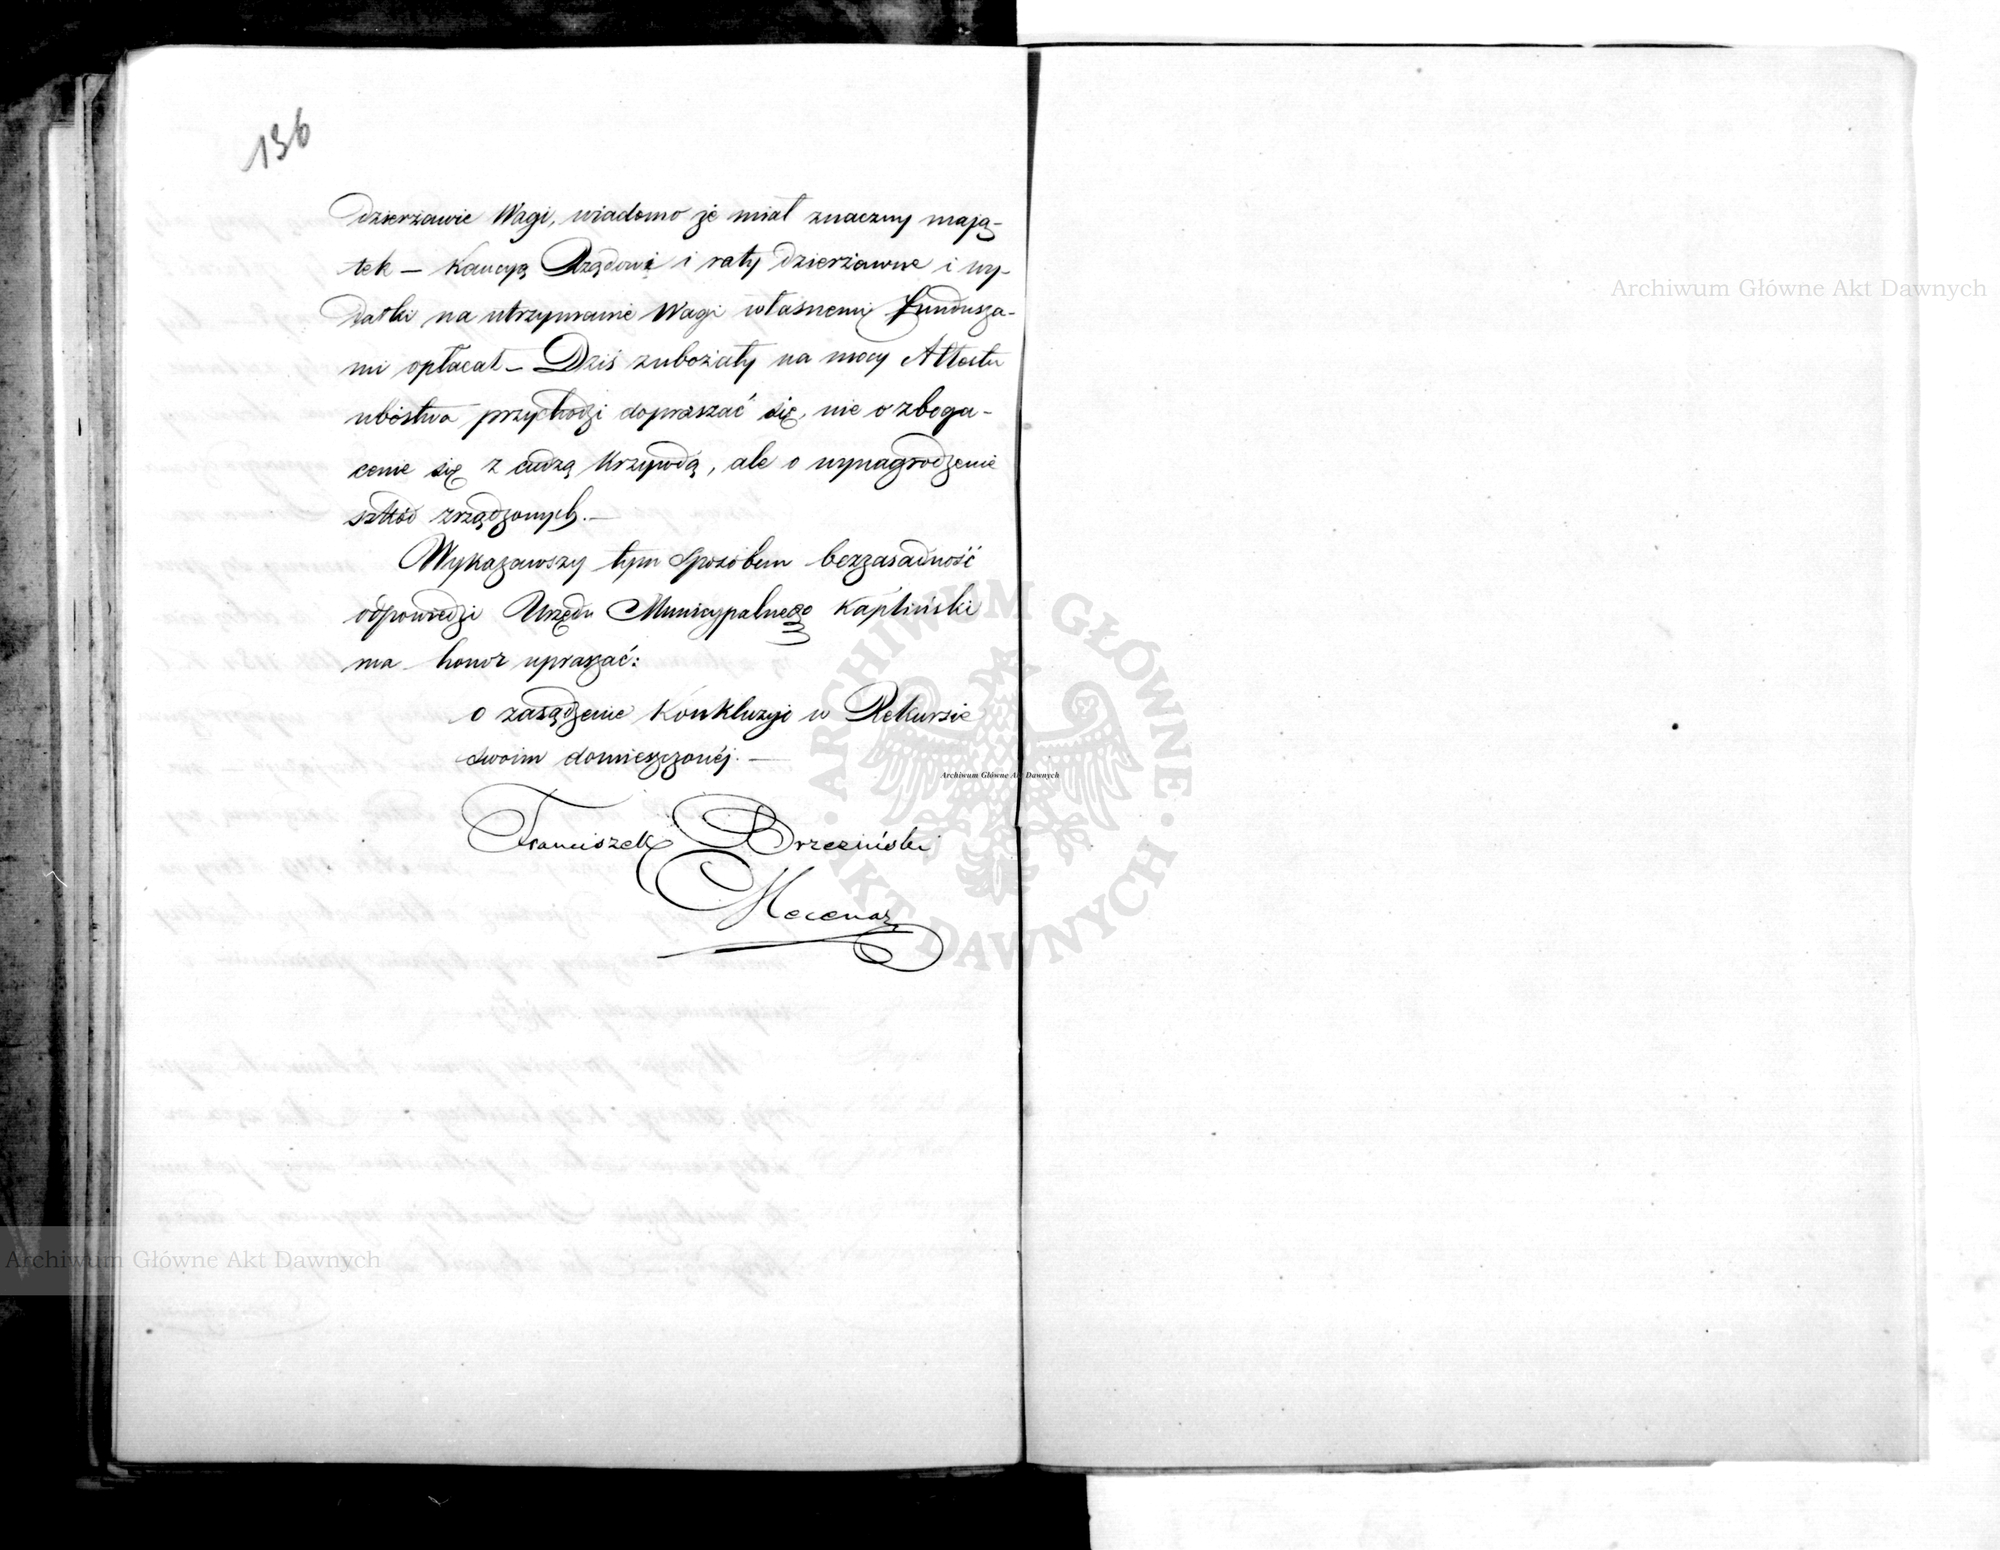 136
dzierżawie Wagi, wiadomo że miał znaczny mają-
tek – Kaucyą Rządowi i raty dzierżawne i wy-
datki na utrzymanie Wagi własnemi Fundusza-
mi opłacał – Dziś zubożały na mocy Attestu
ubóstwa przychodzi dopraszać się, nie o zboga-
cenie się z cudzą Krzywdą, ale o wynagrodzenie
szkód zrządzonych. –
Wykazawszy tym sposobem bezzasadność
odpowiedzi Urzędu Municypalnego Kapliński
ma honor upraszać:
o zasądzenie Konkluzyi w Rekursie
swoim domieszczonéj. –
Franciszek Brzeziński
Mecenas
Archiwum Główne Akt Dawnych
Archiwum Główne Akt Dawnych
Archiwum Główne Akt Dawnych
· ARCHIWUM GŁÓWNE · AKT DAWNYCH